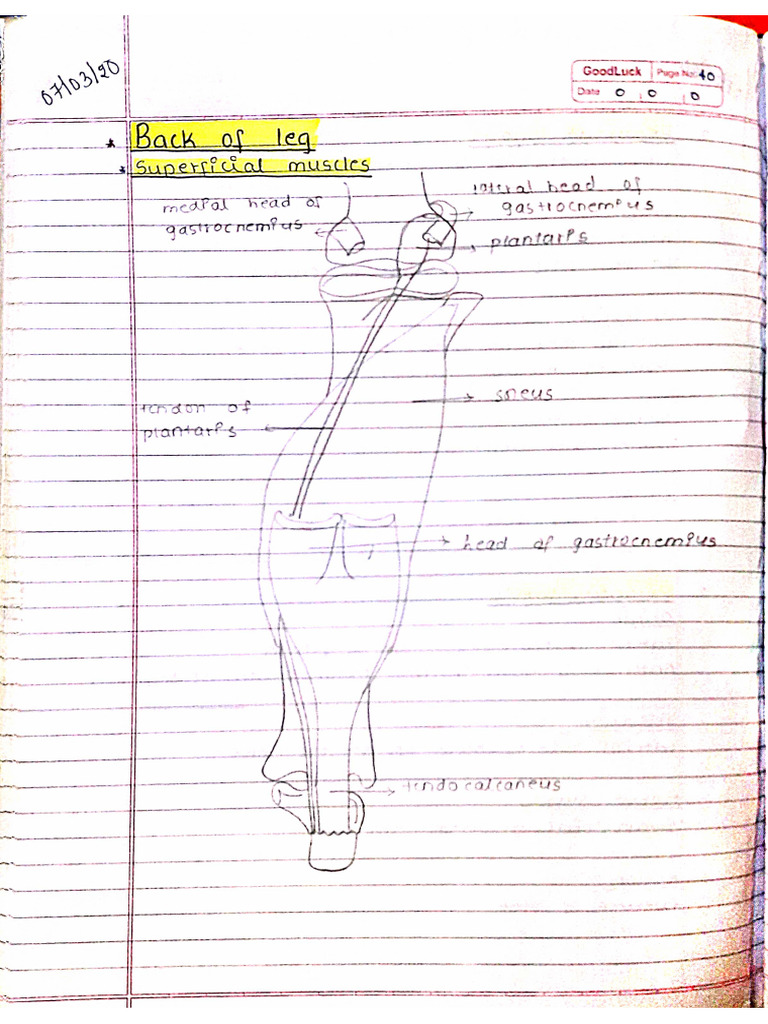 07/03/20
GoodLuck Page No. 40
Date 0 0 0
* Back of leg
* Superficial muscles
medial head of
gastrocnemius
lateral head of
gastrocnemius
plantaris
soleus
tendon of
plantaris
head of gastrocnemius
tendo calcaneus